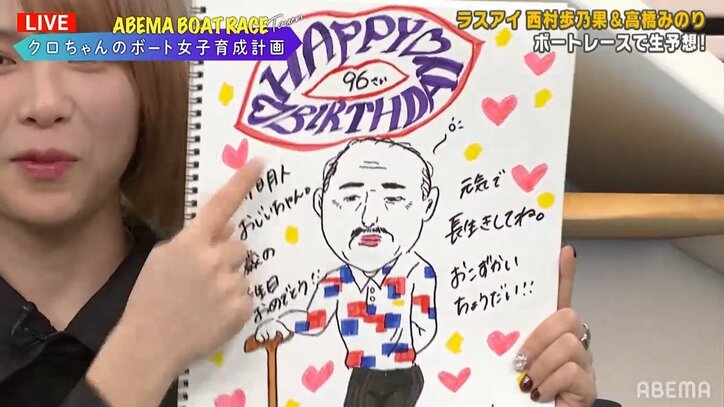 LIVE
ABEMA BOATRACE Town
クロちゃんのボート女子育成計画
ラスアイ 西村歩乃果&高橋みのり
ボートレースで生予想!
HAPPY
BIRTHDAY
96さい
おじいちゃん。
おめでとう!!
元気で
長生きしてね。
おこずかい
ちょうだい!!
ABEMA